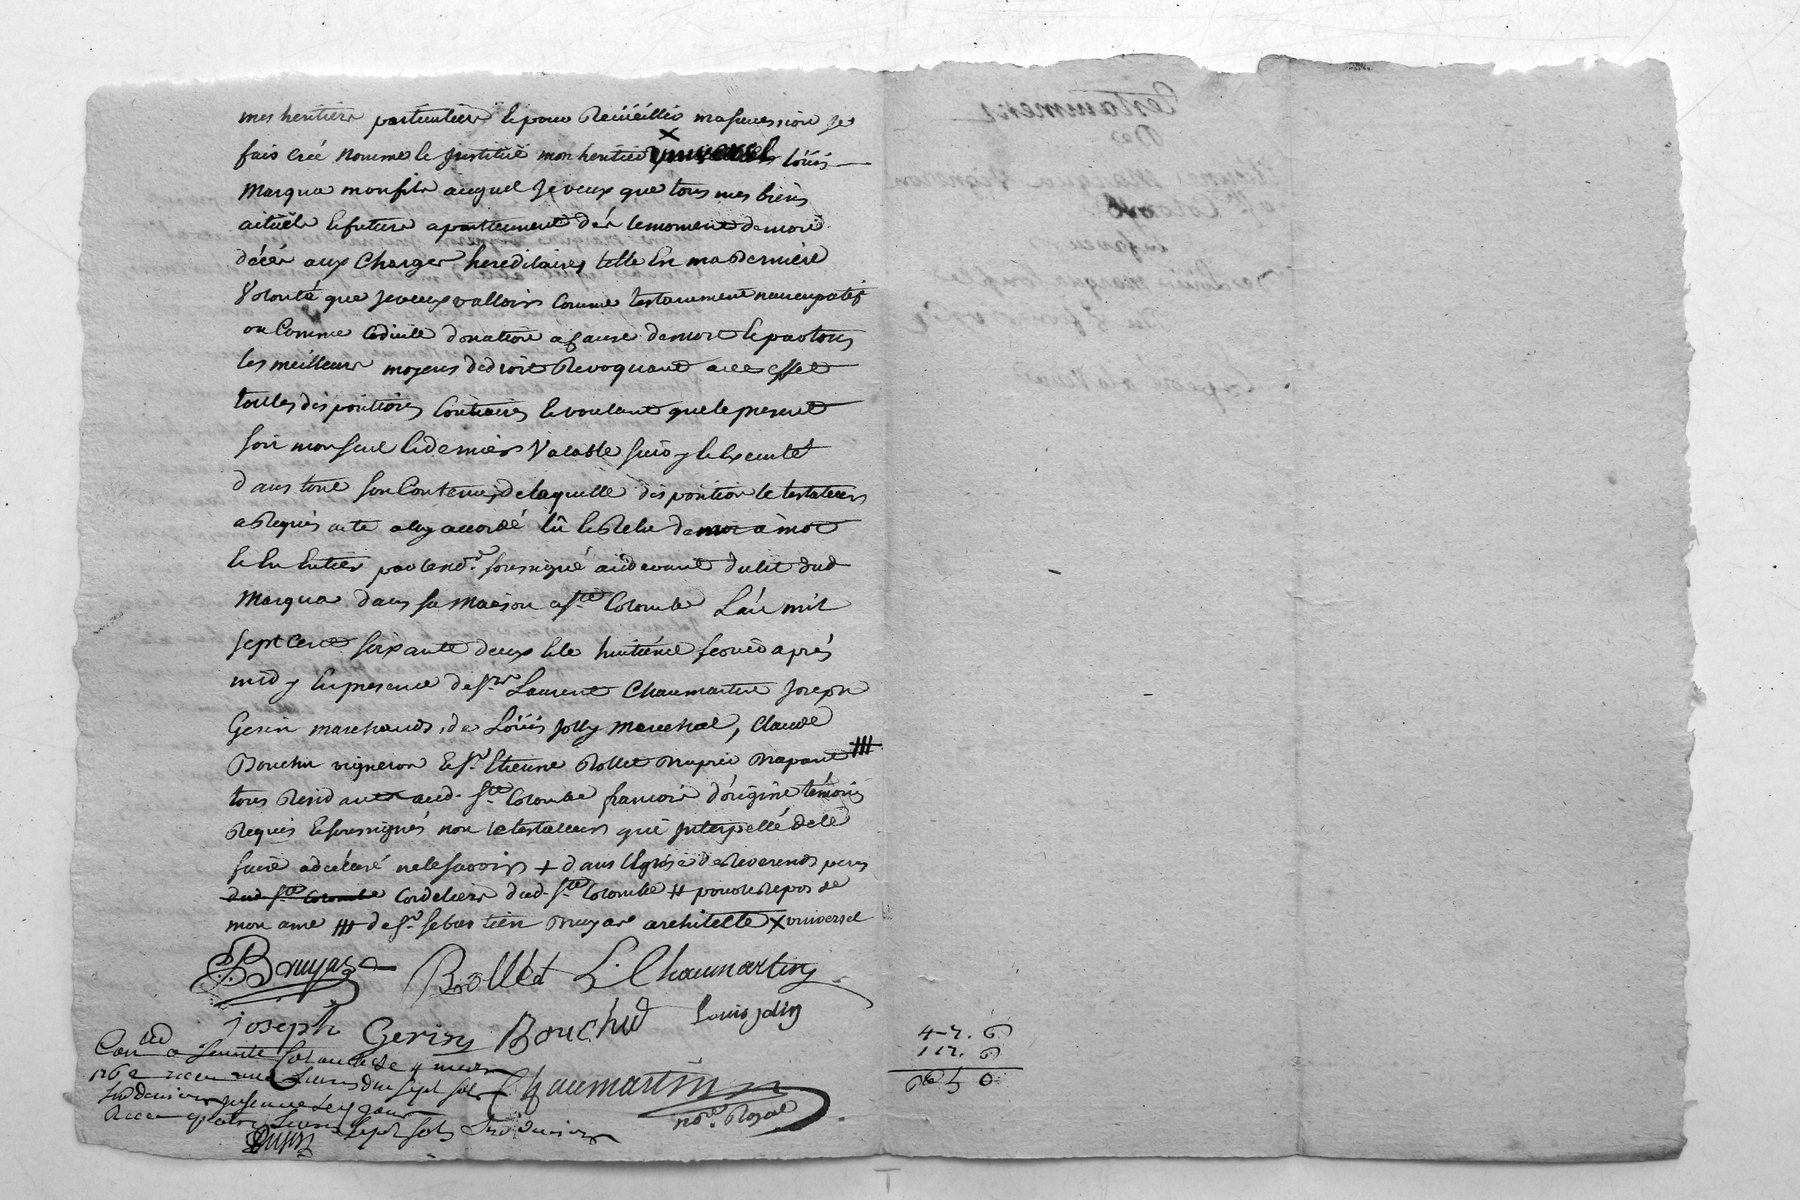 mes heritiers particuliers et pour Recüeillir ma succession je
fais creé nomme et Justitüe mon heritier universel Loüis
Marqua mon fils auquel je veux que tous mes biens
actüels et futurs apartiennent dés le moment de mon
décés aux charges hereditaires telle est ma derniere
Volonté que je veux valloir comme testament nuncupatif
ou comme codicille donation a cause de mort et par tous
les meilleurs moyens de droit Revoquant a cet effet
toutes dispositions contraires et voulant que le present
soit mon seul et dernier Valable suivy et executé
dans tout son contenu, de laquelle disposition le testateur
a Requis acte a luy accordé lû et Relu de mot a mot
et en entier par le no.re soussigné audevant du lit dud
Marqua dans sa maison a s.te Colombe L'an mil
sept cent soixante deux et le huitieme fevrier après
midy En presence de s.rs Laurent Chaumartin Joseph
Gerin marchands, de Loüis Jolly marechal, Claude
Bouchu vigneron et s.r Etienne Rollet
tous Residants aud. s.te Colombe francois d'origine témoins
Requis et soussignés non le testateur que Interpellé de le
faire a declaré ne le savoir + dans l'eglise des Reverends peres
dud s.te Colombe Cordeliers dud. s.te Colombe # pour le Repos de
mon ame ## de s.r Sebastien Bruyas architette x universel
SBruyas Rollet L. Chaumartin
joseph Gerin Bouchu Louis jolly
Con.lé a Sainte Colombe le 4 mars
1762 recu une Livres dix sept sols
six deniers
Recu quatre Livres sept sols six deniers
Chaumartin
no.re Royal
4-7. 6
117. 6
6 5 0